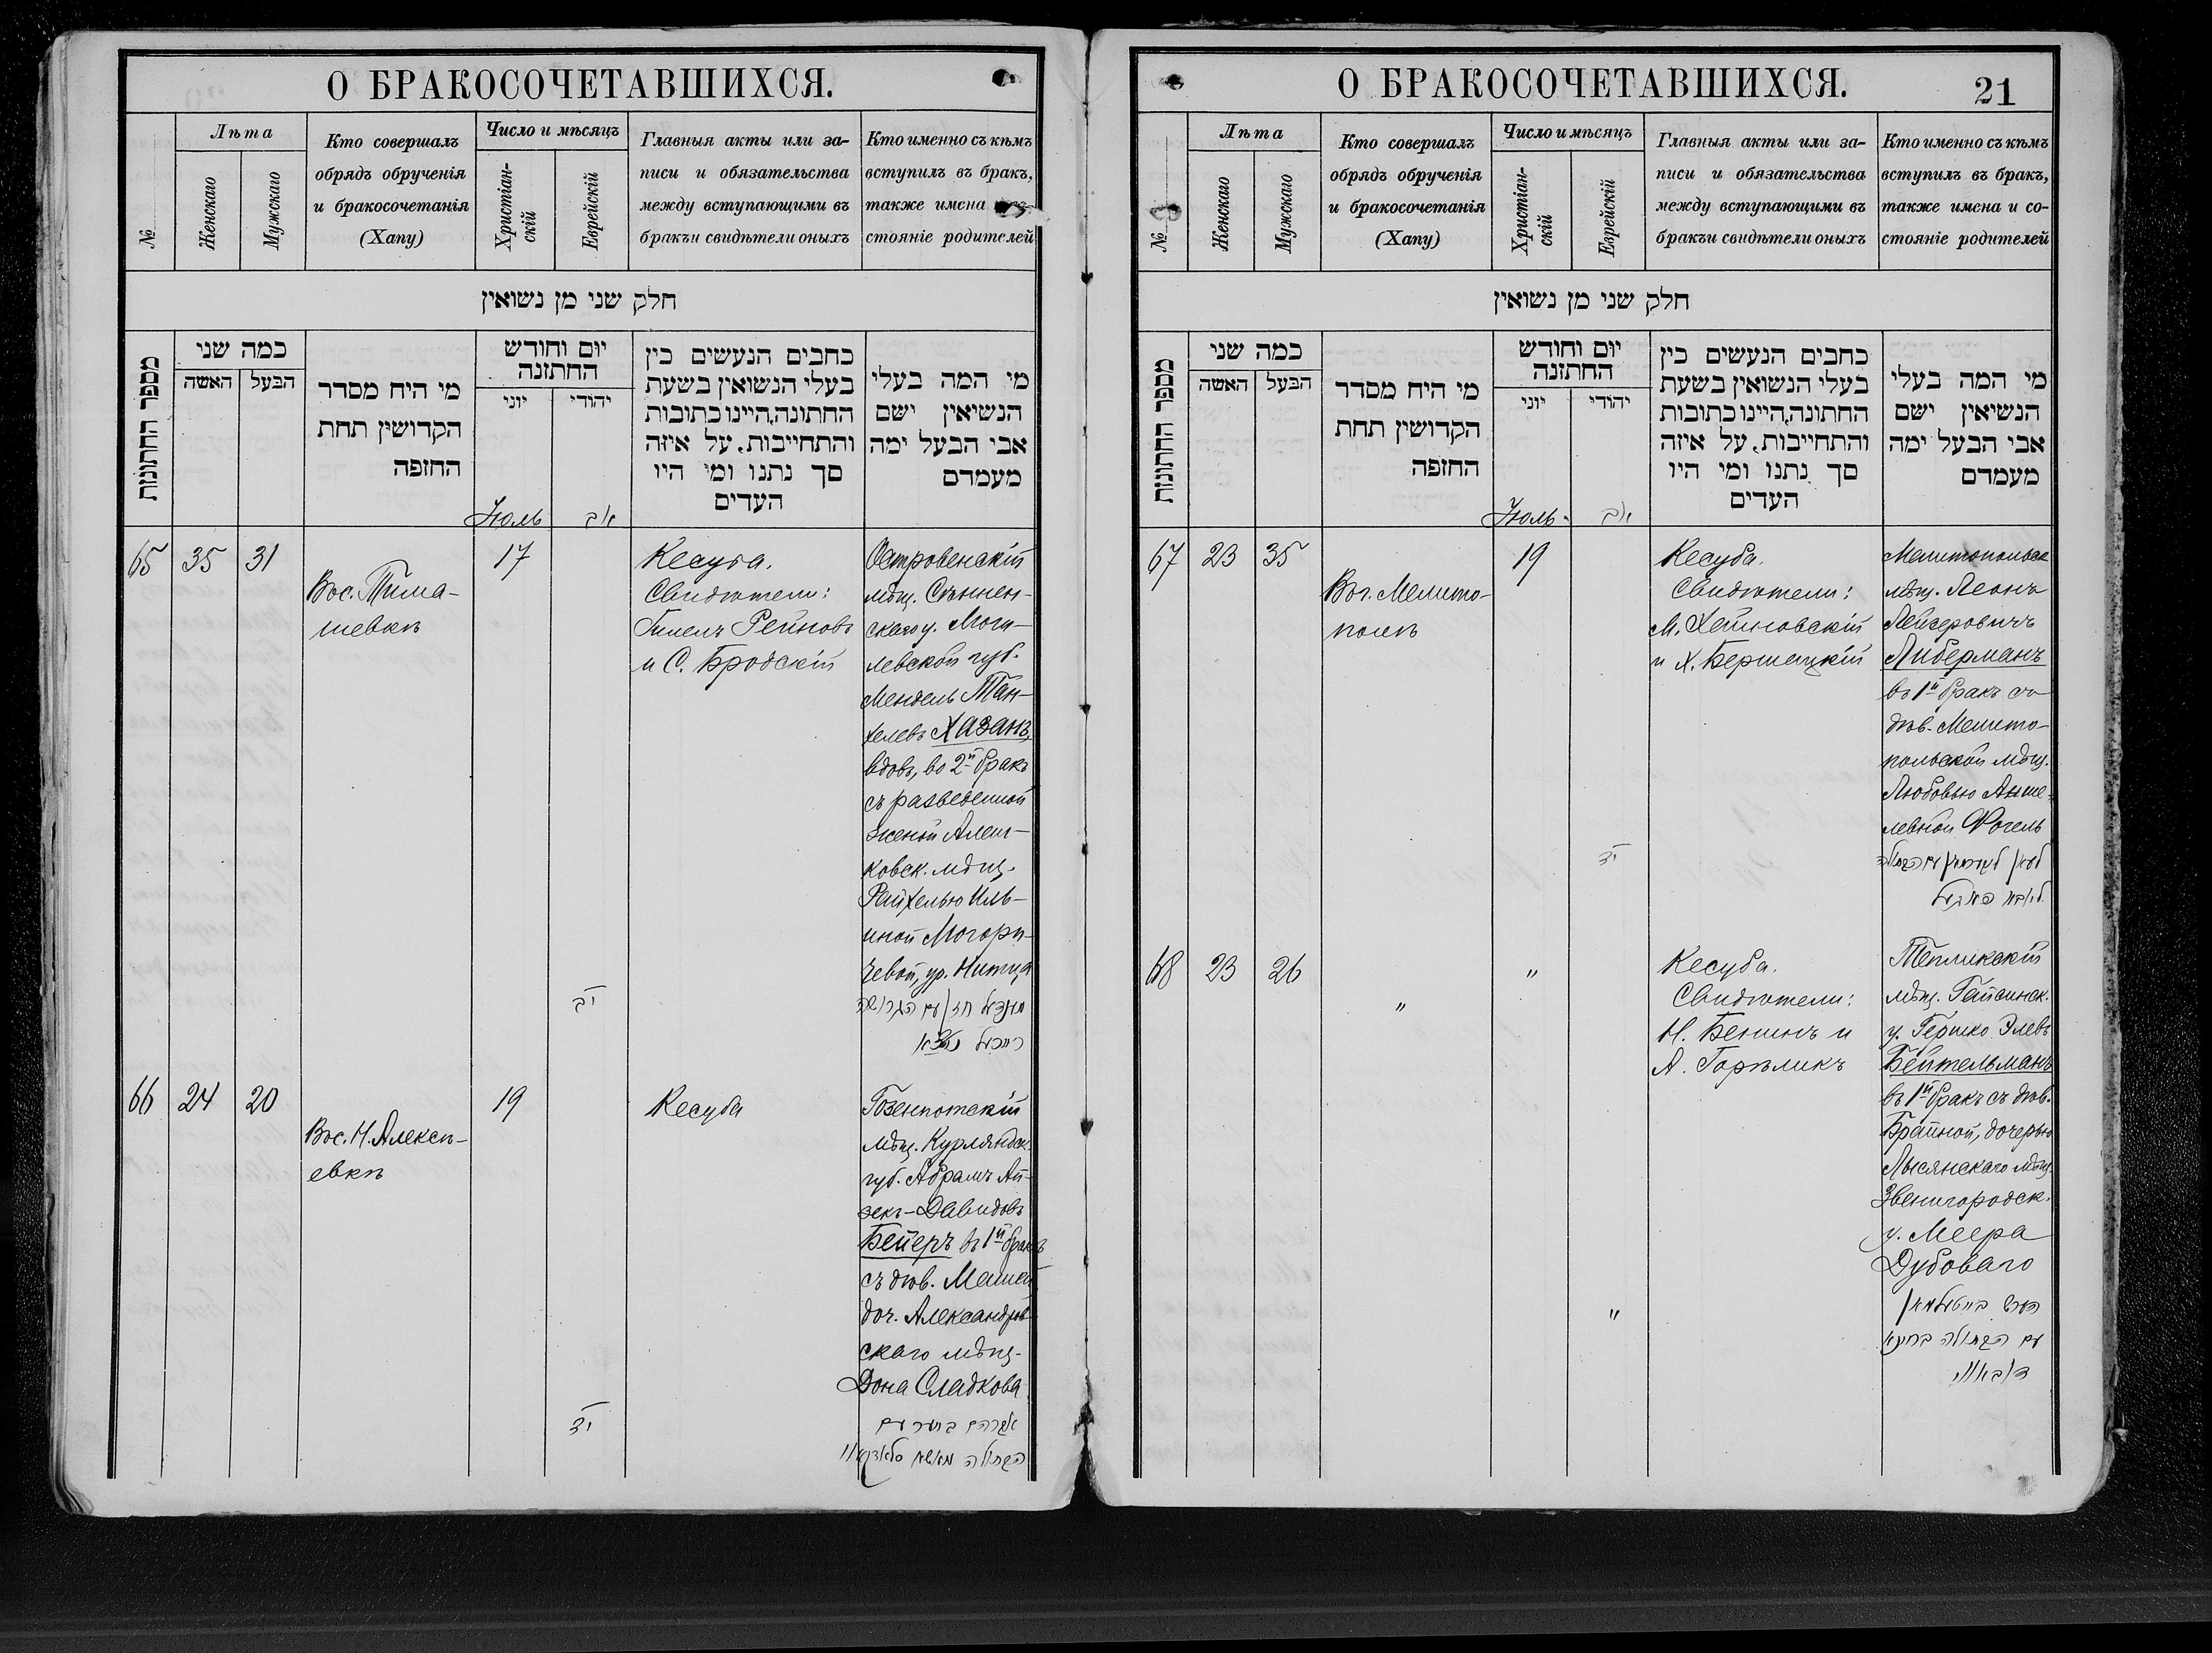 О БРАКОСОЧЕТАВШИХСЯ.
№
Лѣта
Женскаго
Мужскаго
Кто совершалъ
обрядъ обрученія
и бракосочетанія
(Хапу)
Число и мѣсяцъ
Христіан-
скій
Еврейскій
Главныя акты или за-
писи и обязательства
между вступающими въ
бракъи свидѣтели оныхъ
Кто именно съ кѣмъ
вступилъ въ бракъ,
также имена
стояніе родителей
חלק שני מן נשואין
מספר החתונות
כמה שני
האשה
הבעל
מי היח מסדר
הקדושין תחת
החזפה
יום וחודש
החתזנה
יוני
יהודי
כחבים הנעשים כין
בעלי הנשואין בשעת
החתונה,היינו כתובות
והתחייבות, על איזה
סך נתנו ומי היו
העדים
מי המה בעלי
הנשיאין ישם
אבי הבעל ימה
מעמדם
Іюль
אב
65 35 31
Вос. Тима-
шевкѣ
17
Кесуба.
Свидѣтели:
Гилелъ Рейновъ
и С. Бродскій
Островенскій
мѣщ. Сѣннен-
скаго у. Моги-
левской губ.
Мендель Тан-
хелевъ Хазанъ,
вдовъ, во 2й бракъ
съ разведенной
женой Алеш-
ковск. мѣщ.
Райхелью Иль-
иной Могори-
чевой, ур. Нитца
יב
מענדל חזן עם הגרושה
רייכעל
66 24 20
Вос. Н. Алексѣ-
евкѣ
19
Кесуба
Гозенпотскій
мѣщ. Курляндск.
губ. Абрамъ Ай-
зекъ-Давидовъ
Бейеръ въ 1й бракъ
съ дѣв. Машей
доч. Александров
скаго мѣщ.
Дона Сладкова
יד
אברהם בייער עם
הבתולה מאשא סלאדקאוו
О БРАКОСОЧЕТАВШИХСЯ.
21
№
Лѣта
Женскаго
Мужскаго
Кто совершалъ
обрядъ обрученія
и бракосочетанія
(Хапу)
Число и мѣсяцъ
Христіан-
скій
Еврейскій
Главныя акты или за-
писи и обязательства
между вступающими въ
бракъи свидѣтели оныхъ
Кто именно съ кѣмъ
вступилъ въ бракъ,
также имена и со-
стояніе родителей
חלק שני מן נשואין
מספר החתונות
כמה שני
האשה
הבעל
מי היח מסדר
הקדושין תחת
החזפה
יום וחודש
החתזנה
יוני
יהודי
כחבים הנעשים כין
בעלי הנשואין בשעת
החתונה,היינו כתובות
והתחייבות, על איזה
סך נתנו ומי היו
העדים
מי המה בעלי
הנשיאין ישם
אבי הבעל ימה
מעמדם
Іюль.
אב
67 23 35
Вог. Мелито-
полѣ
19
Кесуба.
Свидѣтели:
М. Хейновскій
и Х. Бершацкій
Мелитопольск
мѣщ. Леонъ
Лейзеровичъ
Либерманъ
въ 1й бракъ съ
дѣв. Мелито-
польской мѣщ.
Любовью Анше-
левной Фогель
יד
לעאן ליבערמאן עם הבתולה
ליובא פאגעל
68 23 26
"
"
Кесуба.
Свидѣтели:
Н. Бенинъ и
А. Горѣликъ
Тепликскій
мѣщ. Гайсинск.
у. Гершко Элевъ
Бейтельманъ
въ 1й бракъ съ дѣв.
Брайной, дочерью
Лысянскаго мѣщ.
Звенигородск.
у. Меера
Дубоваго
"
הערש בייטעלמאן
עם הבתולה בריינא
דובאווי